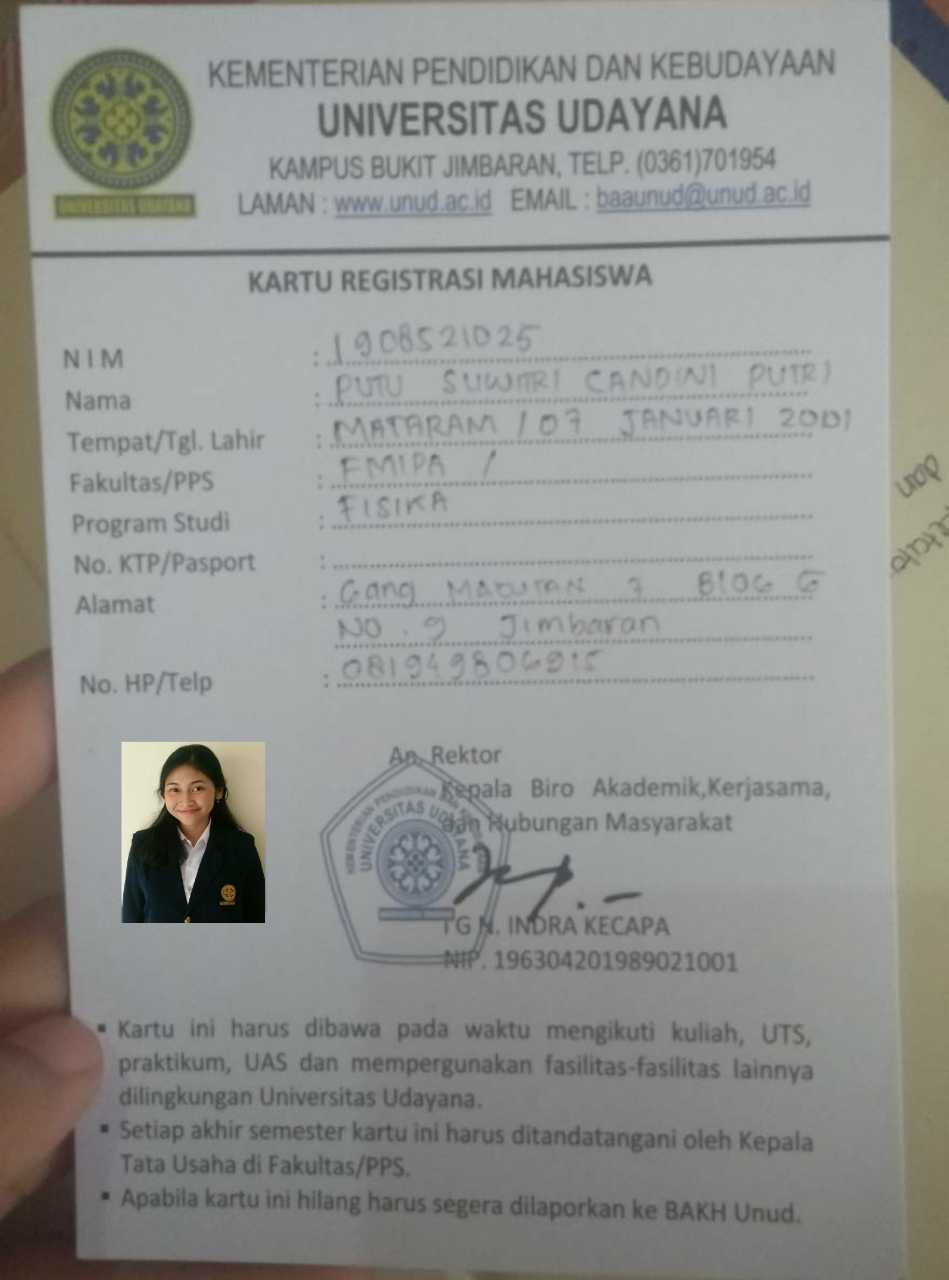 KEMENTERIAN PENDIDIKAN DAN KEBUDAYAAN
UNIVERSITAS UDAYANA
KAMPUS BUKIT JIMBARAN, TELP. (0361)701954
LAMAN : www.unud.ac.id EMAIL : baaunud@unud.ac.id
UNIVERSITAS UDAYANA
KARTU REGISTRASI MAHASISWA
NIM : 1908521025
Nama : PUTU SUWITRI CANDINI PUTRI
Tempat/Tgl. Lahir : MATARAM / 07 JANUARI 2001
Fakultas/PPS : FMIPA /
Program Studi : FISIKA
No. KTP/Pasport :
Alamat : Gang 7 BLOG G
NO. 9 Jimbaran
No. HP/Telp :
An. Rektor
Kepala Biro Akademik,Kerjasama,
dan Hubungan Masyarakat
KEMENTERIAN PENDIDIKAN DAN
UNIVERSITAS UDAYANA
I G N. INDRA KECAPA
NIP. 196304201989021001
▪ Kartu ini harus dibawa pada waktu mengikuti kuliah, UTS,
praktikum, UAS dan mempergunakan fasilitas-fasilitas lainnya
dilingkungan Universitas Udayana.
▪ Setiap akhir semester kartu ini harus ditandatangani oleh Kepala
Tata Usaha di Fakultas/PPS.
▪ Apabila kartu ini hilang harus segera dilaporkan ke BAKH Unud.
dan